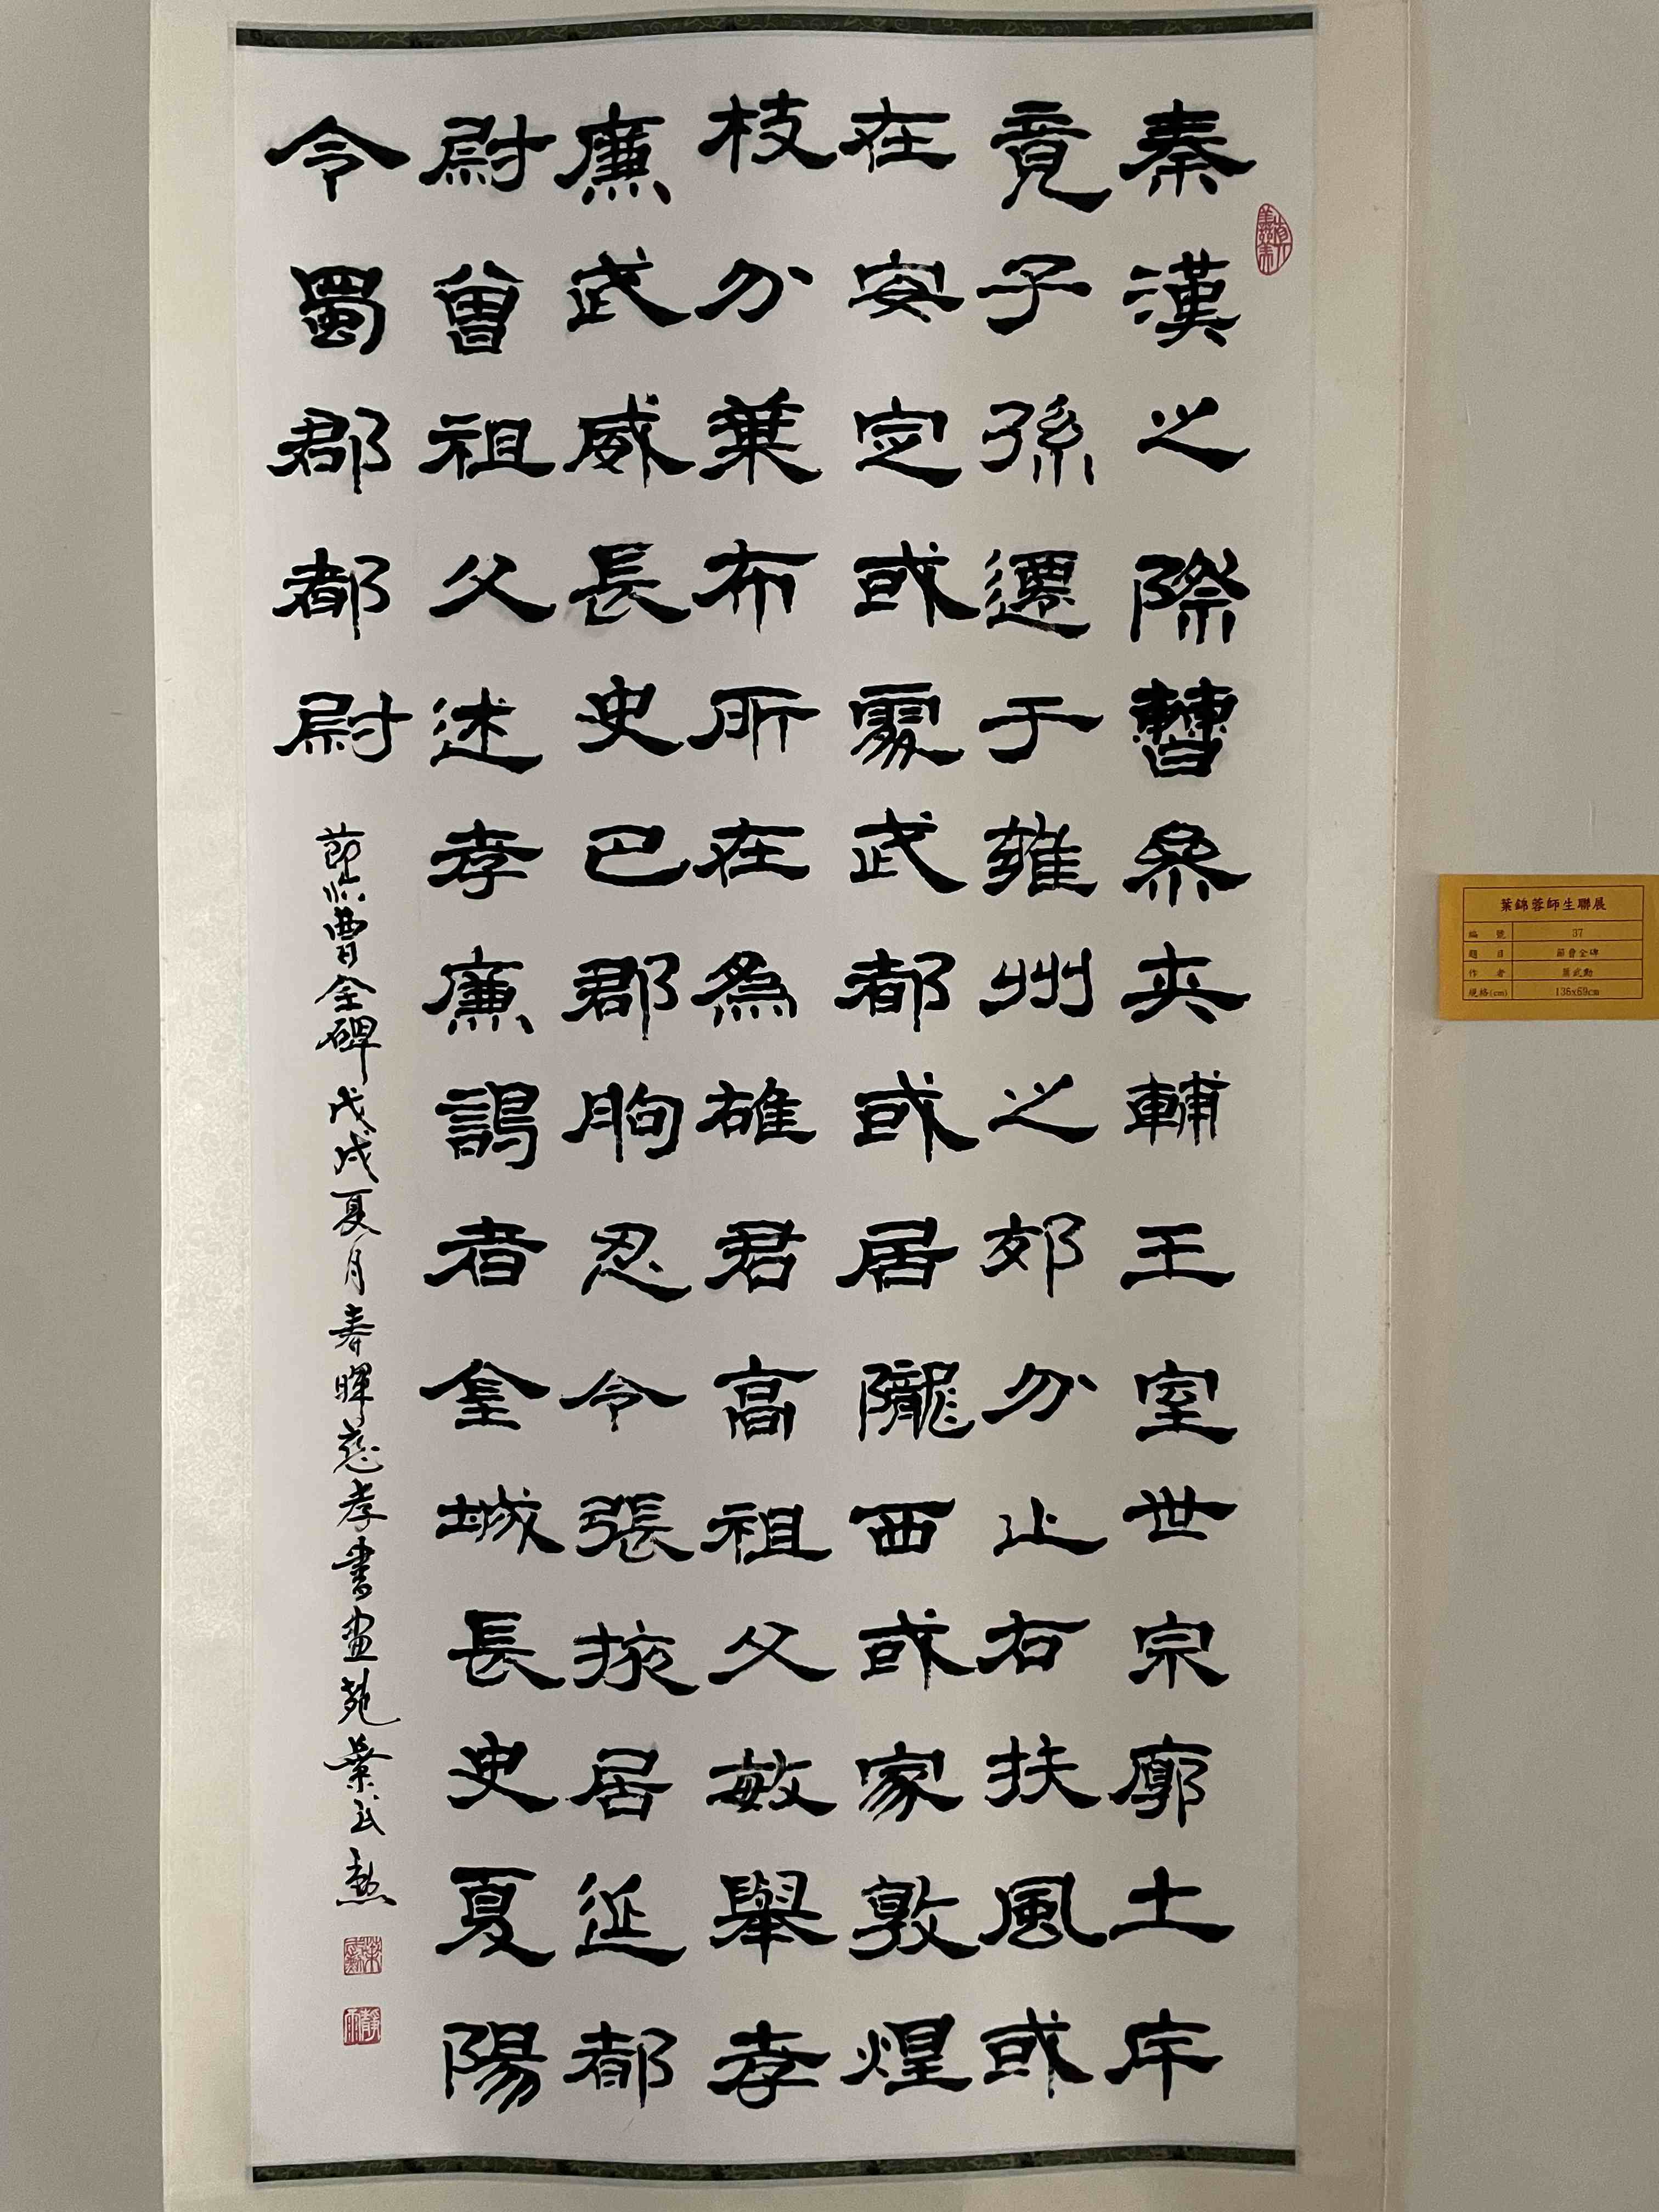 秦漢之際曹參夾輔王室世宗廓土斥
竟子孫遷于雍州之郊分止右扶風或
在安定或處武都或居隴西或家敦煌
枝分葉布所在為雄君高祖父敏舉孝
廉武威長史巴郡朐忍令張掖居延都
尉曾祖父述孝廉謁者金城長史夏陽
令蜀郡都尉
節臨曹全碑戊戌夏月春暉慈孝書画苑葉武勳
葉錦蓉師生聯展
編號 37
題目 節曹全碑
作者 葉武勳
規格(cm) 136x69cm